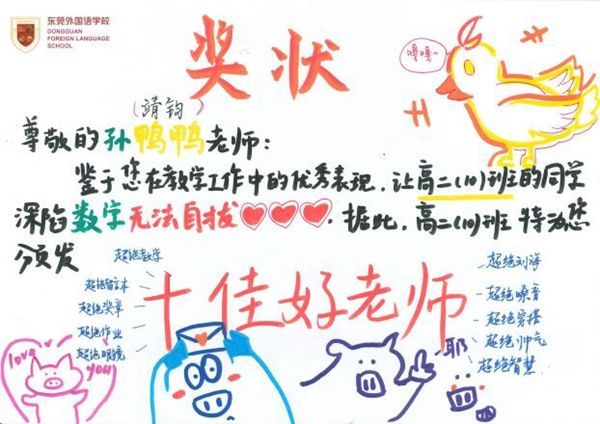 东莞外国语学校
DONGGUAN
FOREIGN LANGUAGE
SCHOOL
奖状
嘎嘎~
(靖钧)
尊敬的孙鸭鸭老师:
鉴于您在教学工作中的优秀表现,让高二(10)班的同学
深陷数学无法自拔。据此,高二(10)班特为您
颁发
十佳好老师
超绝数学
超绝留言本
超绝奖章
超绝作业
超绝眼镜
超绝刘海
超绝嗓音
超绝穿搭
超绝帅气
超绝智慧
love you
耶